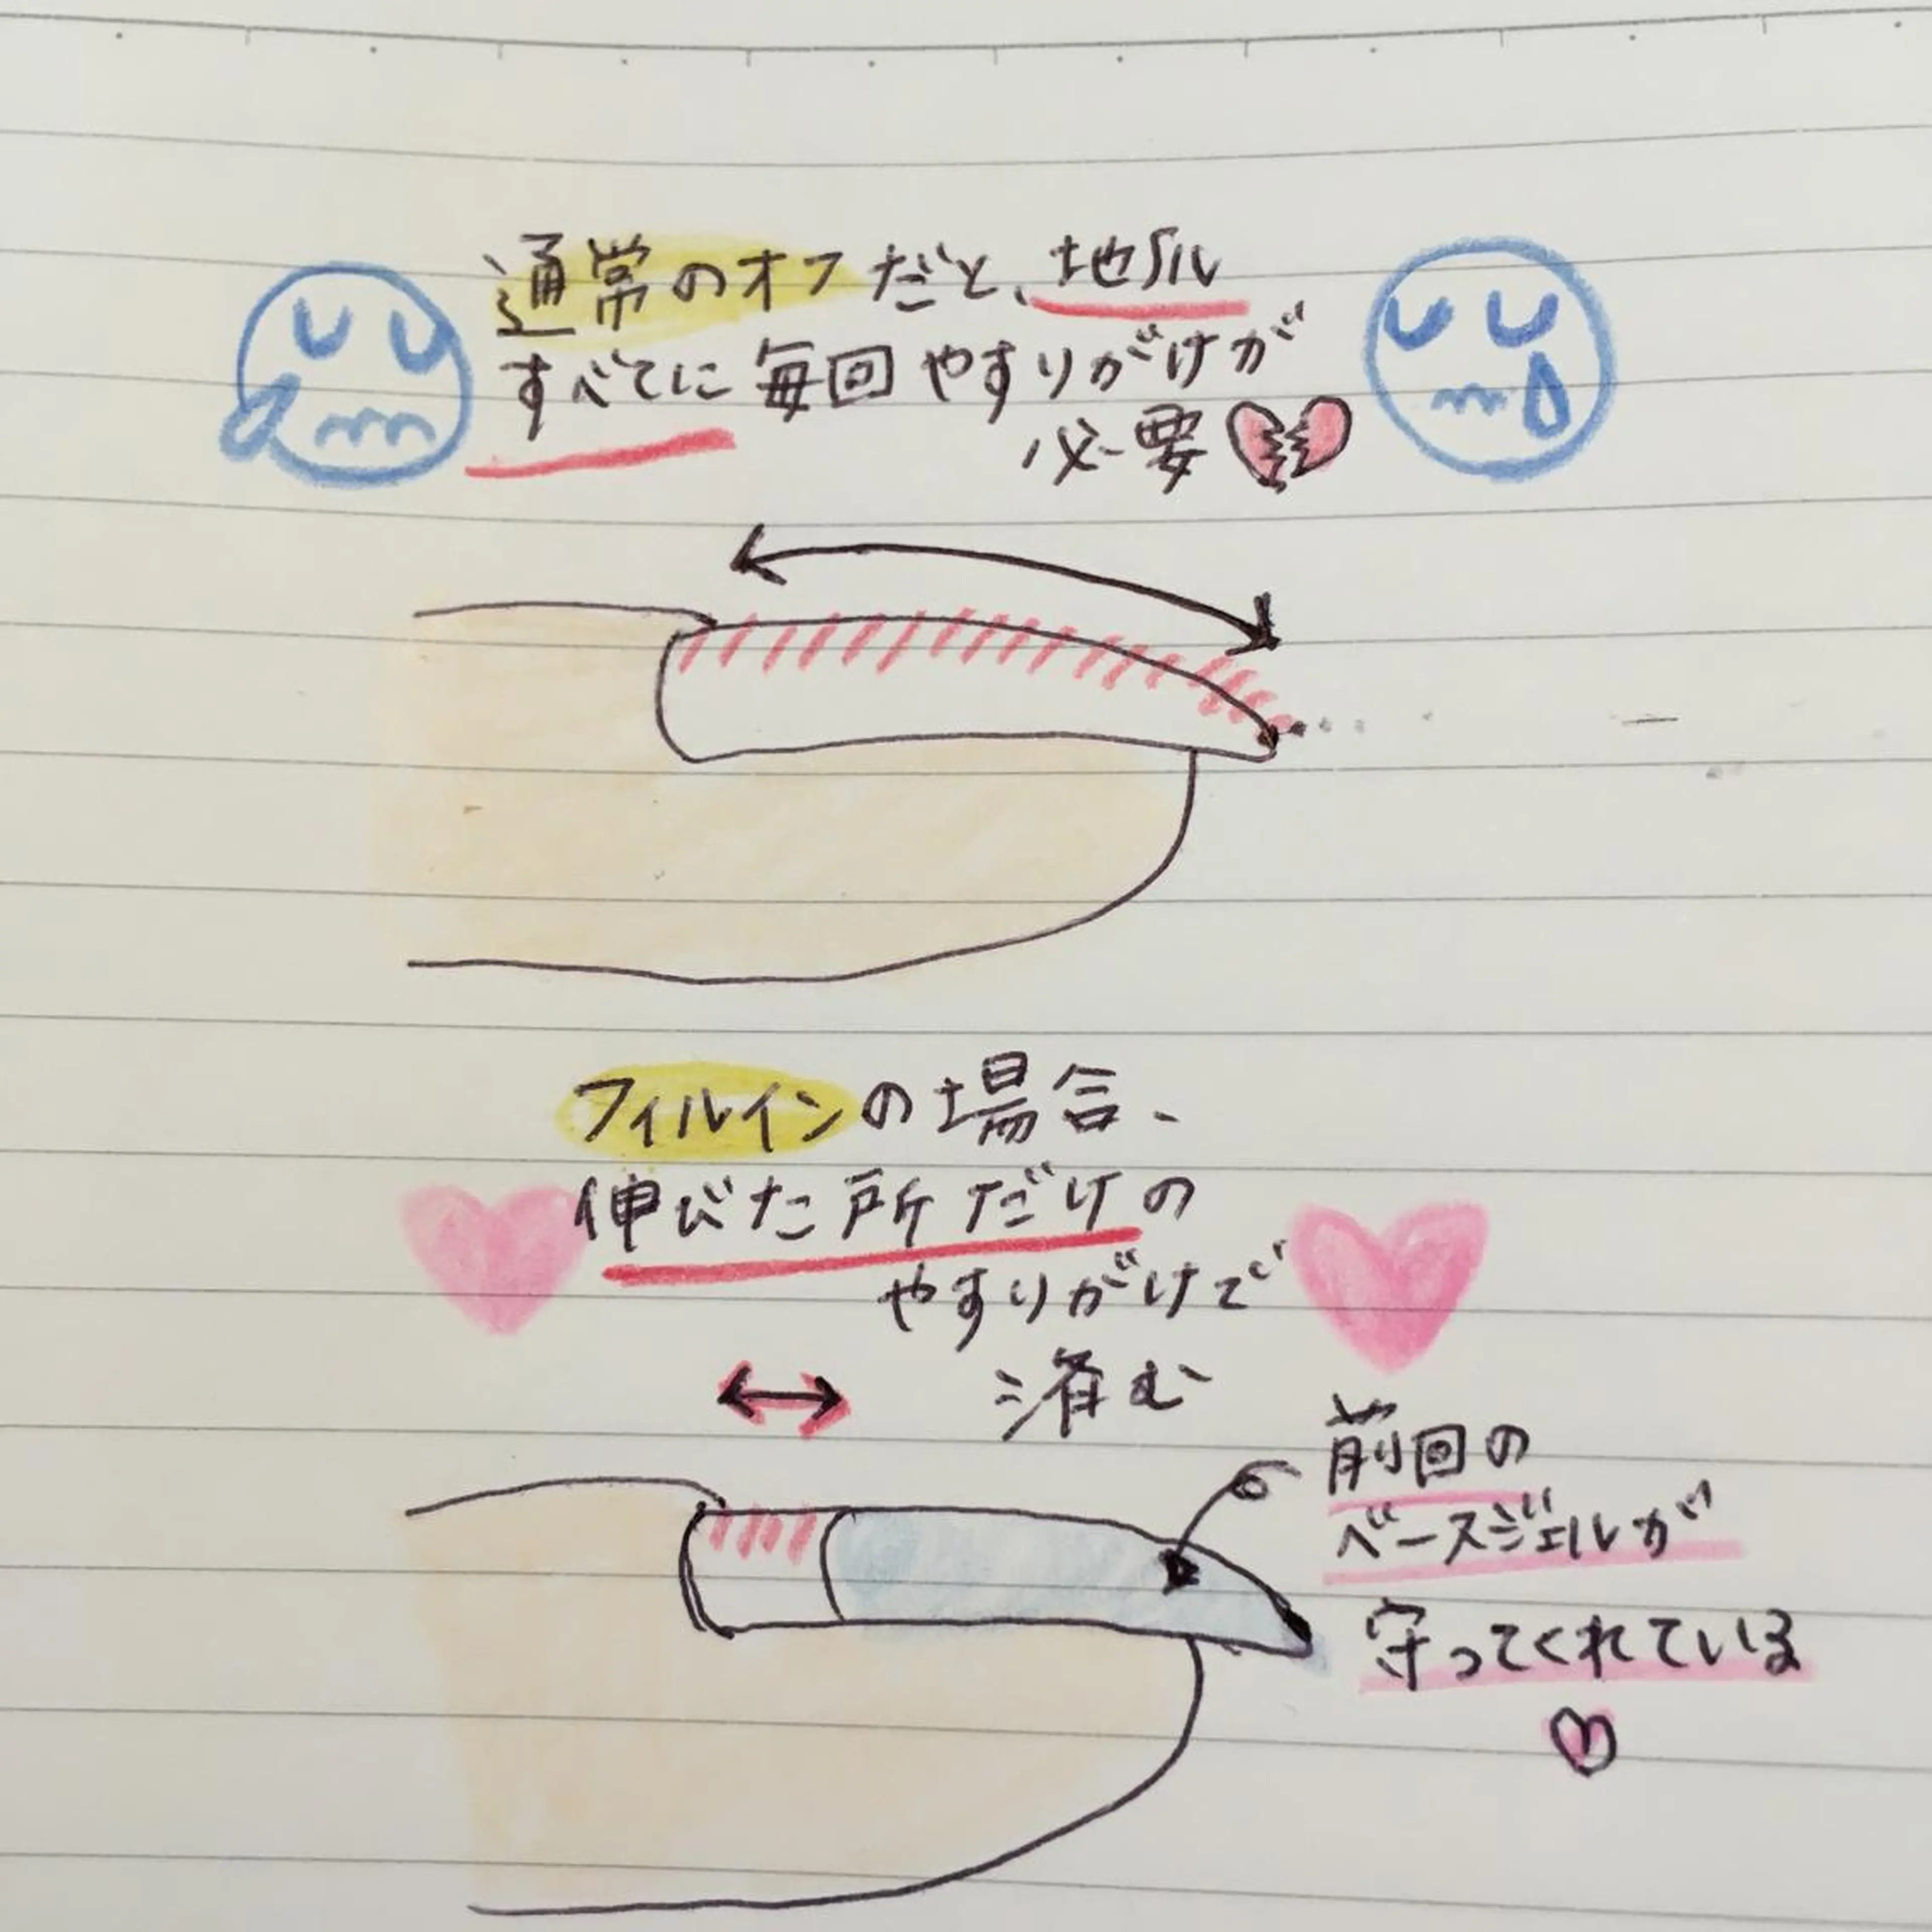 通常のオフだと、地爪
すべてに毎回やすりがけが
必要
フィルインの場合、
伸びた所だけの
やすりがけで
済む
前回の
ベースジェルが
守ってくれている